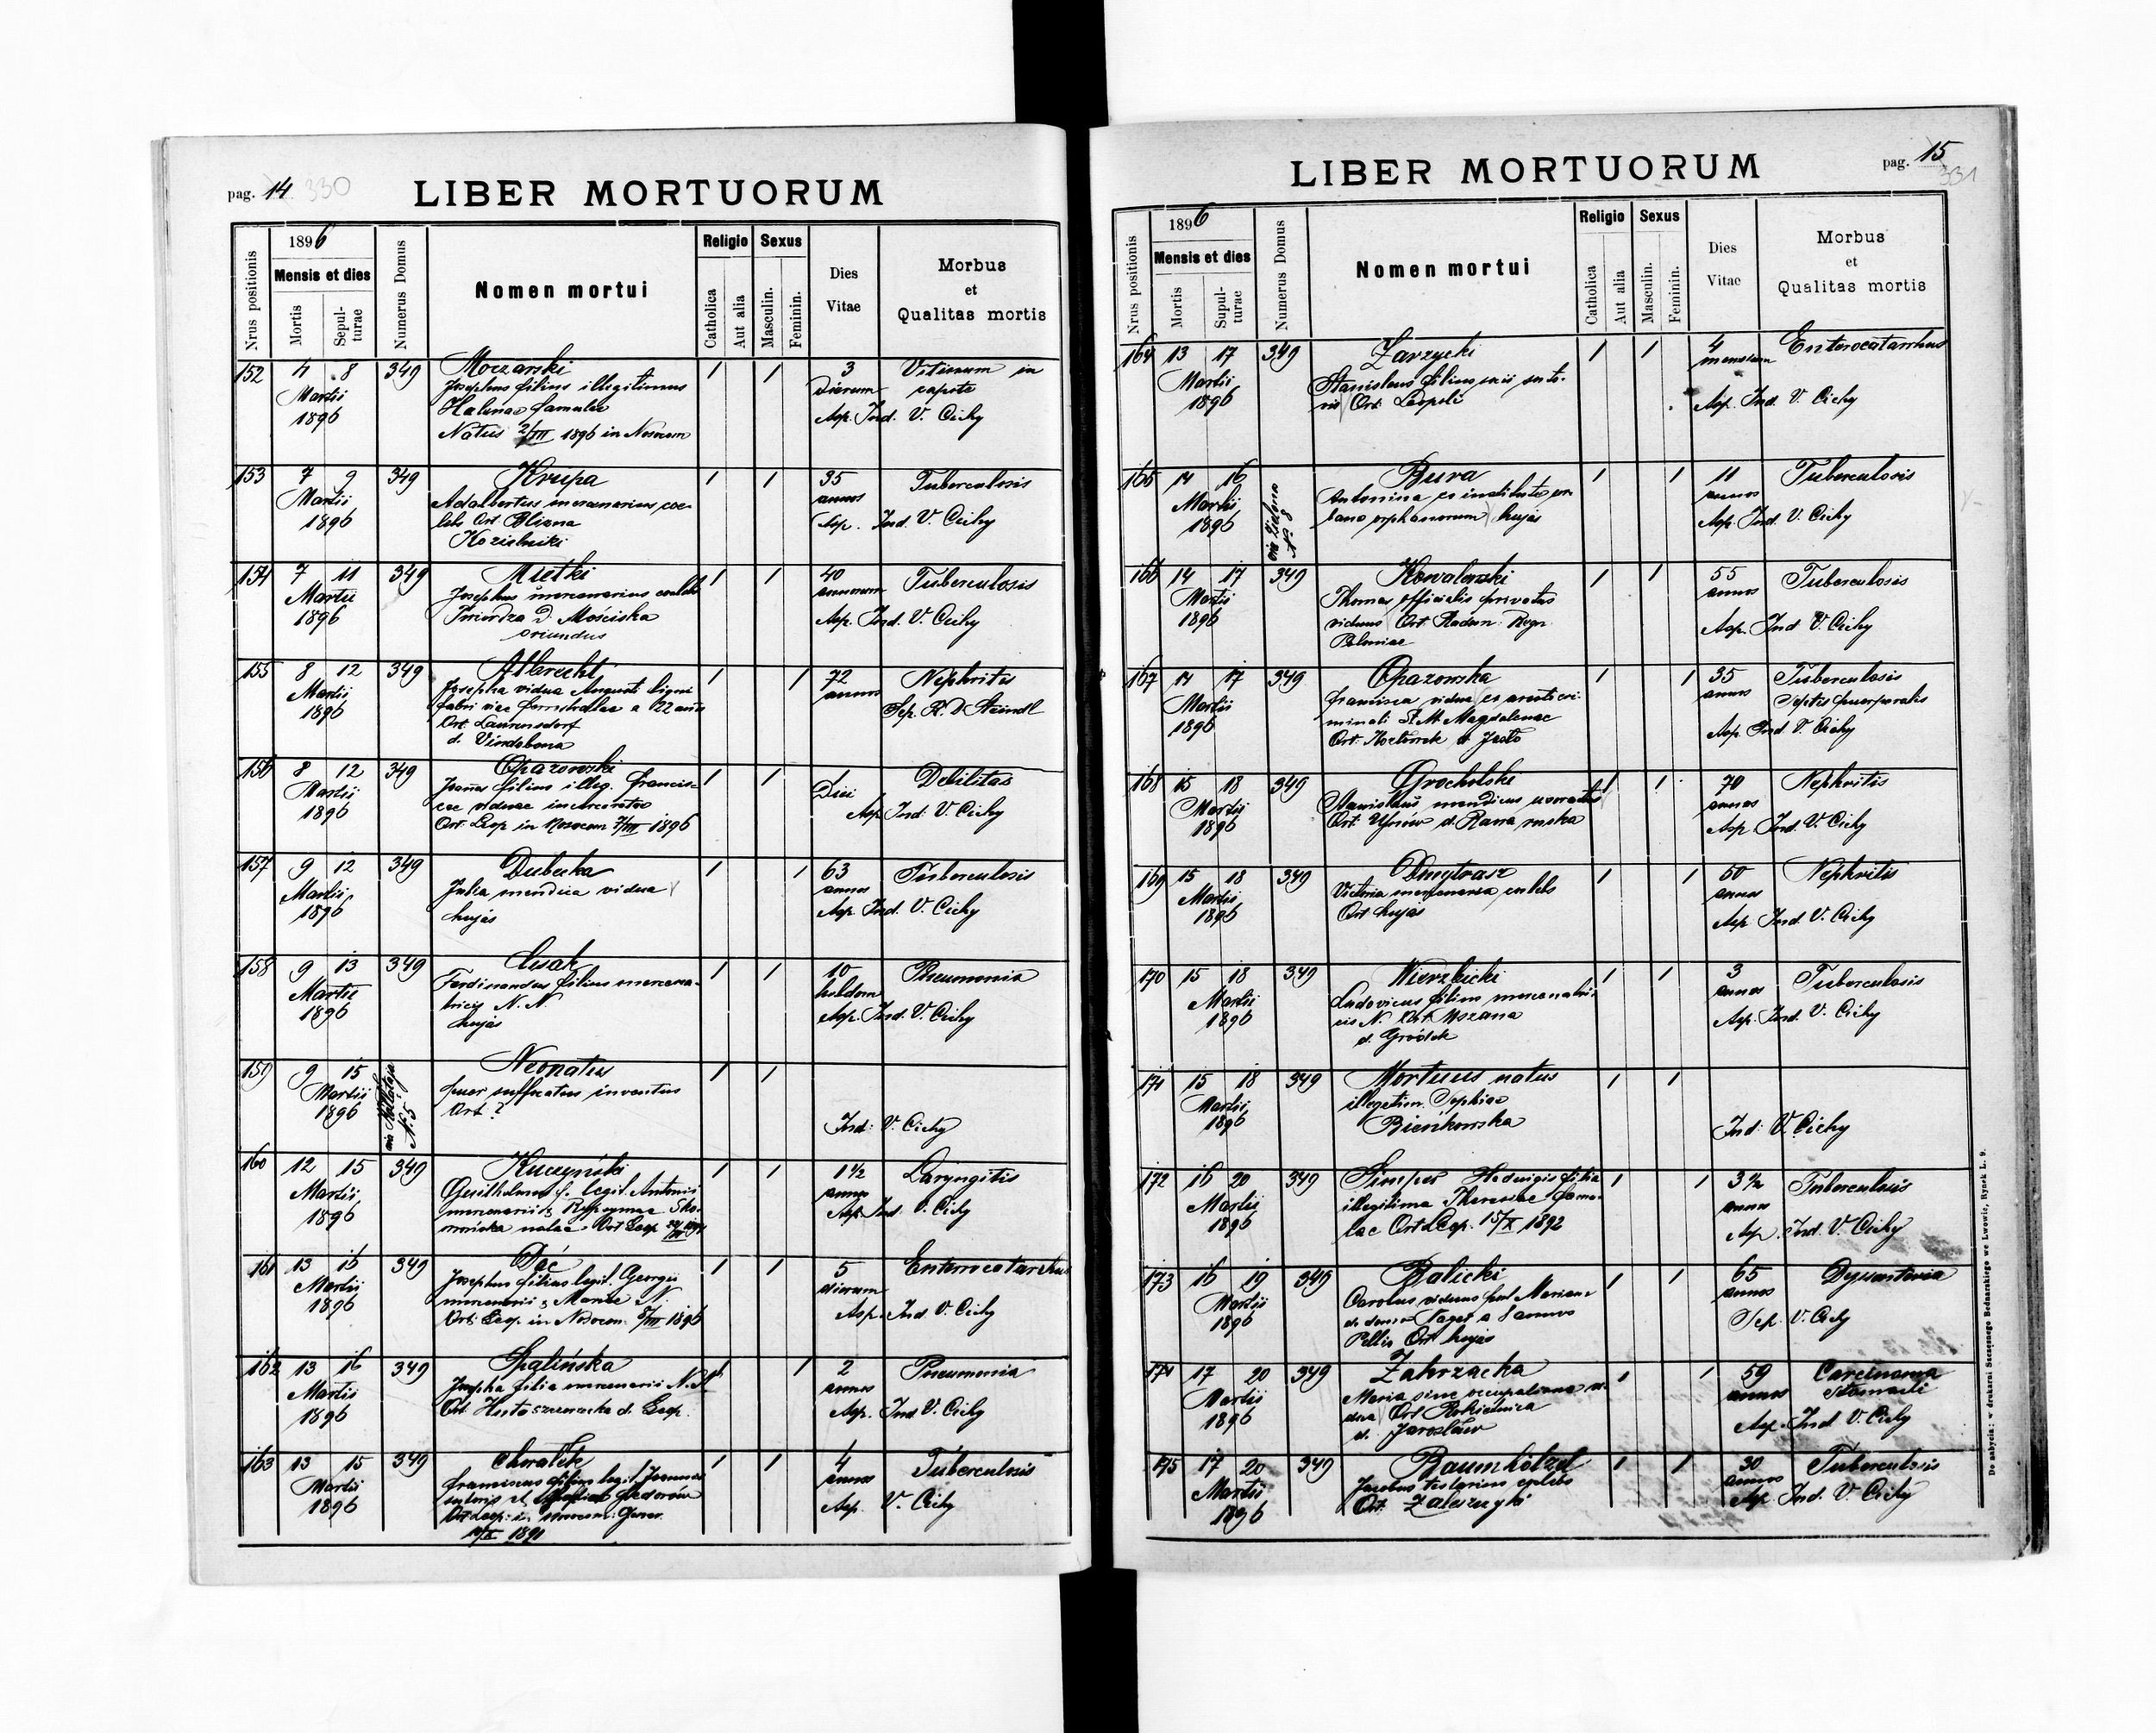 pag. 14 330
LIBER MORTUORUM
Nrus positionis
1896
Mensis et dies
Mortis
Sepul-
turae
Numerus Domus
Nomen mortui
Religio
Catholica
Aut alia
Sexus
Masculin.
Feminin.
Dies
Vitae
Morbus
et
Qualitas mortis
152 4 8 349 Moczarski 1 1 3 Vitium in
Martii Josephus filius illegitimus Dierum capite
1896 Halinae famulae Asp. Ind. V. Cichy
Natus 2/III 1896 in Nosocom
153 7 9 349 Krupa 1 1 35 Tuberculosis
Martii Adalbertus mercenarius coe- annos
1896 lebs Ort. Blizna Asp. Ind. V. Cichy
Kozielniki
154 7 11 349 Mietki 1 1 40 Tuberculosis
Martii Josephus mercenarius coelebs annorum
1896 Twierdza D. Mościska Asp. Ind. V. Cichy
oriundus
155 8 12 349 Albrecht 1 1 72 Nephritis
Martii Josepha vidua Augusti ligni annos Sep. R. D. Steindl
1896 fabri viae ferr a 22 annis
Ort. Laurensdorf
d. Vindobona
156 8 12 349 Opazowski 1 1 1 Debilitas
Martii Joannes filius illeg. Francis- Diei
1896 cae viduae incarceratae Asp. Ind. V. Cichy
Ort. Leop in Nosocom 7/III 1896
157 9 12 349 Dubecka 1 1 63 Tuberculosis
Martii Julia mendica vidua annos
1896 hujas Asp. Ind. V. Cichy
158 9 13 349 Lisak 1 1 10 Pneumonia
Martii Ferdinandus filius mercena- hebdom
1896 tricis N. N. Asp. Ind. V. Cichy
hujas
159 9 15 via Kołłątaja N. 5 Neonatus 1 1
Martii puer suffocatus inventus
1896 Ort ? Ind: V. Cichy
160 12 15 349 Kuczyński 1 1 1 1/2 Laryngitis
Martii Guilhelmus f. legit. Antonii annos
1896 mercenarii & Asp. Ind V. Cichy
natae Ort Leop.
161 13 15 349 Dać 1 1 5 Enterocatarrhus
Martii Josephus filius legit. Georgii dierum
1896 mercenarii & Mariae N. Asp. Ind. V. Cichy
Ort. Leop in Nosocom. 8/III 1896
162 13 16 349 Spalińska 1 1 2 Pneumonia
Martii Josepha filia mercenarii N. N. annos
1896 Ort d. Leop. Asp. Ind V. Cichy
163 13 15 349 Chwałek 1 1 4 Tuberculosis
Martii Franciscus filius legit. Joannes annos
1896 sutoris et Fiedorów Asp. V. Cichy
Ort Leop: in Nosocom: Gener.
1891
pag. 15
331
LIBER MORTUORUM
Nrus positionis
1896
Mensis et dies
Mortis
Supul-
turae
Numerus Domus
Nomen mortui
Religio
Catholica
Aut alia
Sexus
Masculin.
Feminin.
Dies
Vitae
Morbus
et
Qualitas mortis
164 13 17 349 Zarzycki 1 1 4 Enterocatarrhus
Martii Stanislaus filius socii suto- mensium
1896 ris Ort. Leopoli Asp. Ind. V. Cichy
165 14 16 via Zielona N. 8 Bura 1 1 11 Tuberculosis
Martii Antonina ex instituto ur- annos
1896 bano orphanorum hujas Asp. Ind. V. Cichy
166 14 17 349 Kowalewski 1 1 55 Tuberculosis
Martii Thomas officialis privatus annos
1896 viduus Ort. Radom. Regn. Asp. Ind V. Cichy
Poloniae
167 14 17 349 Opazowska 1 1 35 Tuberculosis
Martii Francisca vidua ex aresto cri- annos Septis puerperalis
1896 minali S. M. Magdalenae Asp. Ind V. Cichy
Ort. d. Jasło
168 15 18 349 Grocholski 1 1 70 Nephritis
Martii Stanislaus mendicus uxoratus annos
1896 Ort Uhnów d. Rawa ruska Asp. Ind. V. Cichy
169 15 18 349 Dmytrasz 1 1 50 Nephritis
Martii Victoria mercenaria coelebs annos
1896 Ort hujas Asp. Ind. V. Cichy
170 15 18 349 Wierzbicki 1 1 3 Tuberculosis
Martii Ludovicus filius mercenatri- annos
1896 cis N. Ort. Mszana Asp. Ind. V. Cichy
d. Gródek
171 15 18 349 Mortuus natus 1 1
Martii illegitim. Sophiae
1896 Bieńkowska Ind: V. Cichy
172 16 20 349 Hedvigis filia 1 1 3 1/2 Tuberculosis
Martii illegitima Theresiae famu- annos
1896 lae Ort Leop. 15/X 1892 Asp. Ind. V. Cichy
173 16 19 349 Balicki 1 1 65 Dysenteria
Martii Carolus viduus post Mariam annos
1896 de domo Nagel a 8 annos Sep. V. Cichy
Pellio Ort hujas
174 17 20 349 Zahrzacka 1 1 59 Carcinoma
Martii Maria sine occupatione vi- annos stomachi
1896 dua Ort Rokietnica Asp. Ind V. Cichy
d. Jarosław
175 17 20 349 Baumholzel 1 1 30 Tuberculosis
Martii Jacobus coelebs annos
1896 Ort. Zaleszczyki Asp. Ind. V. Cichy
Do nabycia: w drukarni Szczęsnego Bednarskiego we Lwowie, Rynek L. 9.